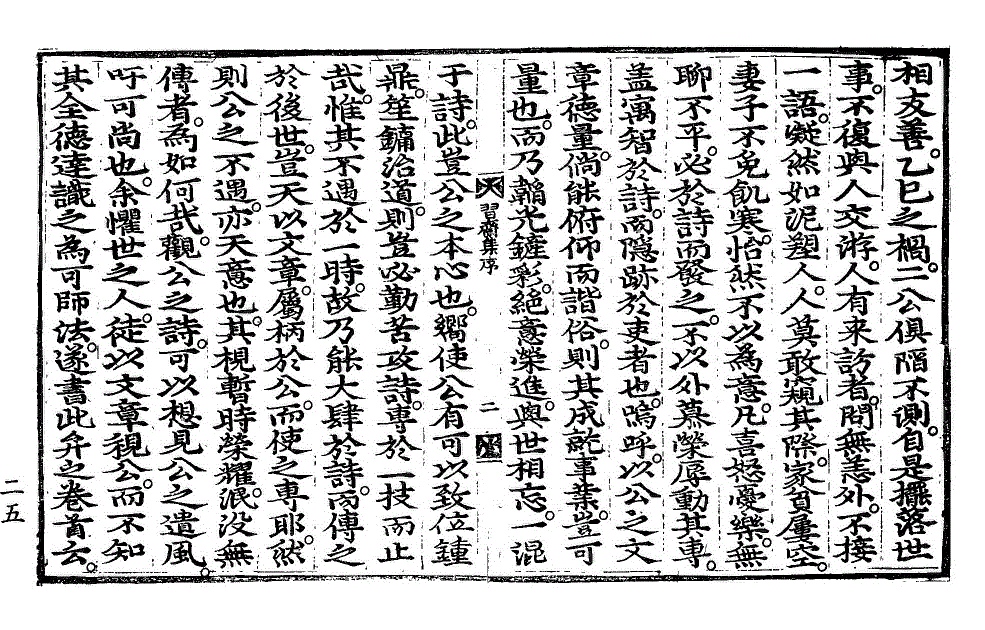 相友善。乙巳之禍。二公俱陷不測。自是擺落世
事。不復與人交游。人有来訪者。問無恙外。不接
一語。凝然如泥塑人。人莫敢窺其際。家貧屢空。
妻子不免飢寒。怡然不以為意。凡喜怒憂樂。無
聊不平。必於詩而發之。不以外慕榮辱動其專。
盖寓智於詩。而隱跡於吏者也。嗚呼。以公之文
章德量。倘能俯仰而諧俗。則其成就事業。豈可
量也。而乃韜光鏟彩。絕意榮進。與世相忘。一混
習齋集序
二
于詩。此豈公之本心也。嚮使公有可以致位鍾
鼎。笙鏞治道。則豈必勤苦攻詩。專於一技而止
哉。惟其不遇於一時。故乃能大肆於詩。而傳之
於後世。豈天以文章屬柄於公。而使之專耶。然
則公之不遇。亦天意也。其視暫時榮耀。泯没無
傳者。為如何哉。觀公之詩。可以想見公之遺風。
吁可尚也。余懼世之人。徒以文章視公。而不知
其全德達識之為可師法。遂書此弁之卷首云。
二五